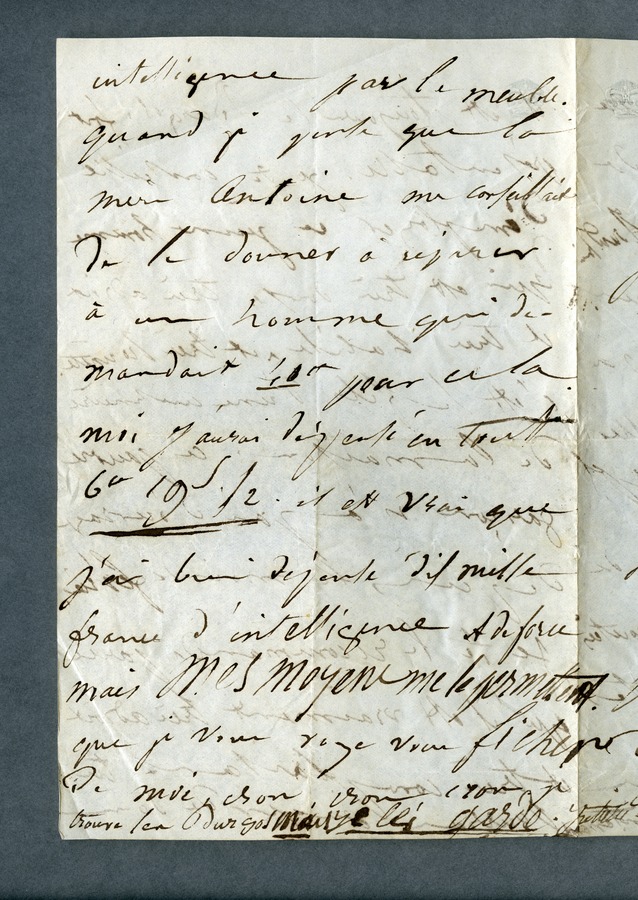 intelligence par le meuble.
quand je pense que la
mere Antoine me conseillait
De le donner à réparer
à un homme qui de-
mandait 40 pour cela
moi j'aurai dépensé en tout
6 19 /2. il est vrai que
j'ai bien dépensé dix mille
francs d'intelligence
mais Mes Moyens me le permettent
que je vous voye vous ficher
De moi, cron cron cron je
trouve mais je les garde.